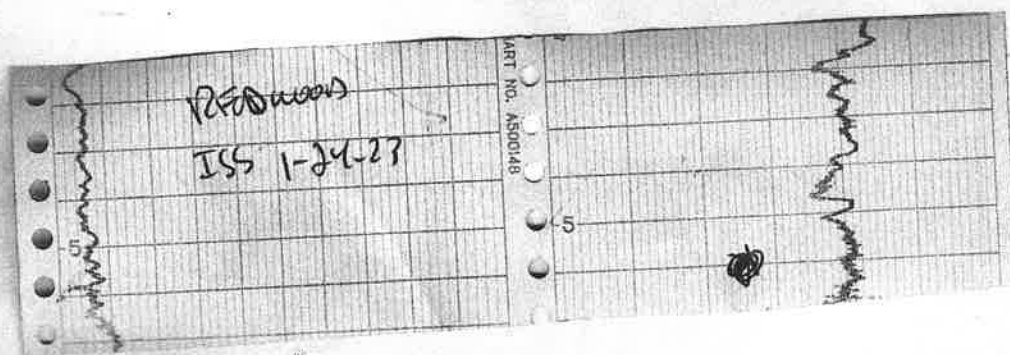 REDWOOD
ISS 1-24-23
ART NO. A500148
5
5